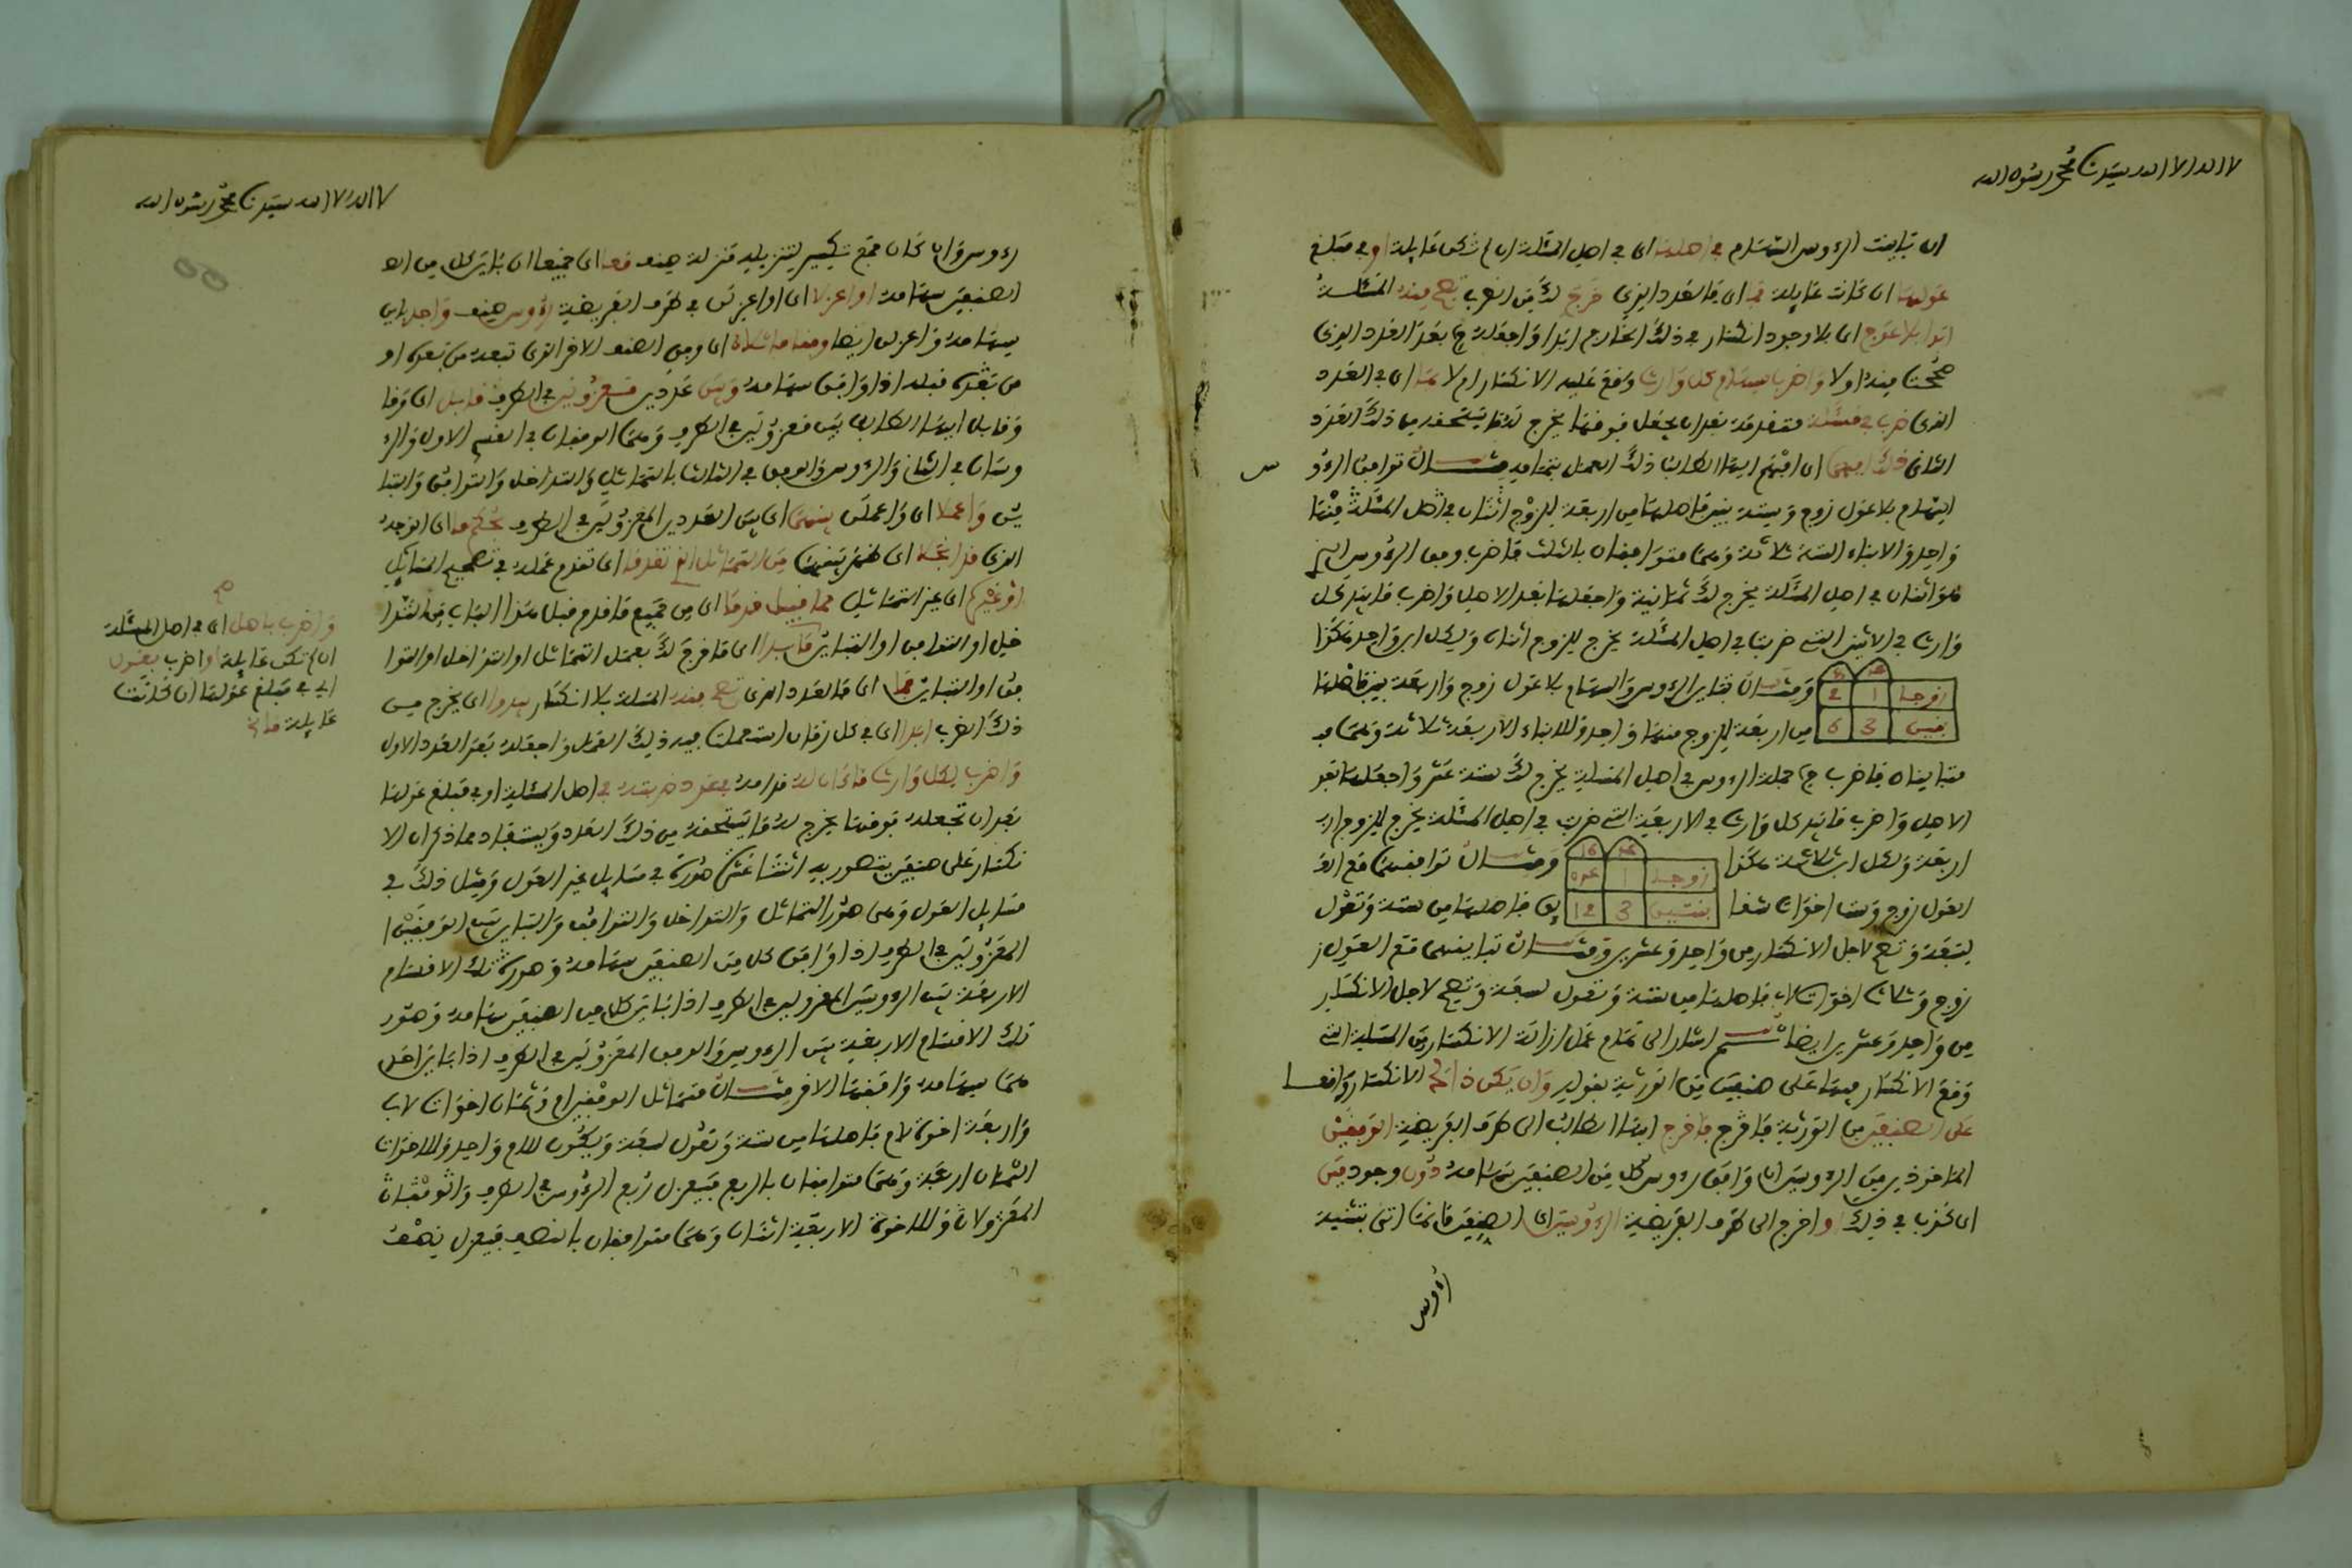 لا اله الا الله سيدنا محمد رسول الله
ان تباينت الرءوس السهام في اصلها اي في اصل المسئلة ان لم تكن عايلة او في مبلغ
عولها ان كانت عايلة فما اي فالعدد الذي خرج لك من الضرب تصح منه المسئلة
ابدا بلا عوج اي بلا وجود انكسار في ذلك الخارج ابدا واجعله بعد العدد الذي
صحت منه اولا واضرب سهام كل وارث وقع عليه الانكسار ام لا بما اي في العدد
الذي ضرب في مسئلة متقدمة بعد ان يجعل فوقها يخرج له ما يستحقه من ذلك العدد
الثاني فذلك افهم اي افهم ايها الطالب ذلك العمل بتمامه مثال توافق الرءو
س
السهام بلا عول زوج وستة بنين فاصلها من اربعة للزوج اثنان في اصل المسئلة منها
واحد والابناء الستة ثلاثة وهما متوافقان بالثلث فاضرب وفق الرءوس الذي
هو اثنان في اصل المسئلة يخرج لك ثمانية واجعلها بعد الاصل واضرب ما بيد كل
وارث في الاثنين التي ضربتا في اصل المسئلة يخرج للزوج اثنان ولكل ابن واحد هكذا
زوج 1 2
بنين 3 6
ومثال تباين الرءوس والسهام بلا عول زوج واربعة بنين فاصلها
من اربعة للزوج منها واحد وللابناء الاربعة ثلاثة وهما
متباينان فاضرب جملة الرءوس في اصل المسئلة يخرج لك ستة عشر واجعلها بعد
الاصل واضرب ما بيد كل وارث في الاربعة التي ضربت في اصل المسئلة يخرج للزوج ار
اربعة ولكل ابن ثلاثة هكذا
زوج 1
بنين 3 12
ومثال توافقهما مع العو
العول زوج وست اخوات شقا
يق فاصلها من ستة وتعول
لسبعة وتصح لاجل الانكسار من واحد وعشرين ومثال تباينهما مع العول ز
زوج وثلاث اخوات لاب فاصلها من ستة وتعول لسبعة وتصح لاجل الانكسار
من واحد وعشرين ايضا ثم اشار الى تمام عمل ازالة الانكسار من المسئلة التي
وقع الانكسار فيها على صنفين من الورثة بقوله وان يكن ذلكم الانكسار واقعا
على الصنفين من الورثة فاخرج فاخرج ايها الطالب الى طرف الفريضة الوفقين
الماخوذين من الرءوسين ان وافق رءوس كل من الصنفين سهامه دون وجود مين
اي كذب في ذلك او اخرج الى طرف الفريضة الرءوسين اي الصنفين وانما اتى بتثنية
رءوس
لا اله الا الله سيدنا محمد رسول الله
رءوس وان كان جمع تكسير لتنزيله منزلة صنف معا اي جميعا ان باين كل من الص
الصنفين سهامه او اعزلا اي او اعزلن في طرف الفريضة رءوس صنف واحد باين
سهامه واعزلن ايضا وفقا ماثلاه اي وفق الصنف الاخر الذي تبعه من بعده او
من تقدمه قبله اذا وافق سهامه وبين عددين معزولين في الطرف قابل اي وفا
وقابل ايها الطالب بين معزولين في الطرف وهما الوفقان في القسم الاول والر
وسان في الثاني والرءوس والوفق في الثالث بالتماثل والتداخل والتوافق والتبا
ين واعملا اي واعملن بينهما اي بين العددين المعزولين في الطرف بحكم ما اي الوجه
الذي قد انجلا اي ظهر بينهما من التماثل الخ تقدم اي تقدم عمله في تصحيح المسائل
او غيره اي غير التماثل مما قبيل قدما اي من جميع ما قدم قبل هذا الباب من التدا
خل او التوافق او التباين فما بدا اي فما خرج لك بعمل التماثل او التداخل او التوا
فق او التباين فما اي فالعدد الذي تصح منه المسئلة بلا انكسار يبدوا اي يخرج من
ذلك الضرب ابدا اي في كل زمان استعملت فيه ذلك العمل واجعله بعد العدد الاول
واضرب لكل وارث ما كان له قدامه في عدد ضربته في اصل المسئلة او في مبلغ عولها
بعد ان تجعله فوقها يخرج له ما يستحقه من ذلك العدد ويستفاد مما ذكر ان الا
نكسار على صنفين يتصور به اثنتا عشر صورة في مسايل غير العول ومثل ذلك في
مسايل العول وهي صور التماثل والتداخل والتوافق والتباين بين الوفقين ا
المعزولين في الطرف اذا وافق كل من الصنفين سهامه وصور تلك الاقسام
الاربعة بين الرءوسين المعزولين في الطرف اذا باين كل من الصنفين سهامه وصور
تلك الاقسام الاربعة بين الرءوس والوفق المعزولين في الطرف اذا باين احد
هما سهامه ووافقها الاخر مثال تماثل الوفقين ام وثمان اخوات لاب
واربعة اخوة لام فاصلها من ستة وتعول لسبعة ويكون للام واحد وللاخوات
الثمان اربعة وهما متوافقان بالربع فيعزل ربع الرءوس في الطرف وهو اثنان
المعزولان وللاخوة الاربعة اثنان وهما متوافقان بالنصف فيعزل نصف
صح
واضرب باصل اي في اصل المسئلة
ان لم تكن عايلة او اضرب بعول
اي في مبلغ عولها ان كانت
عايلة